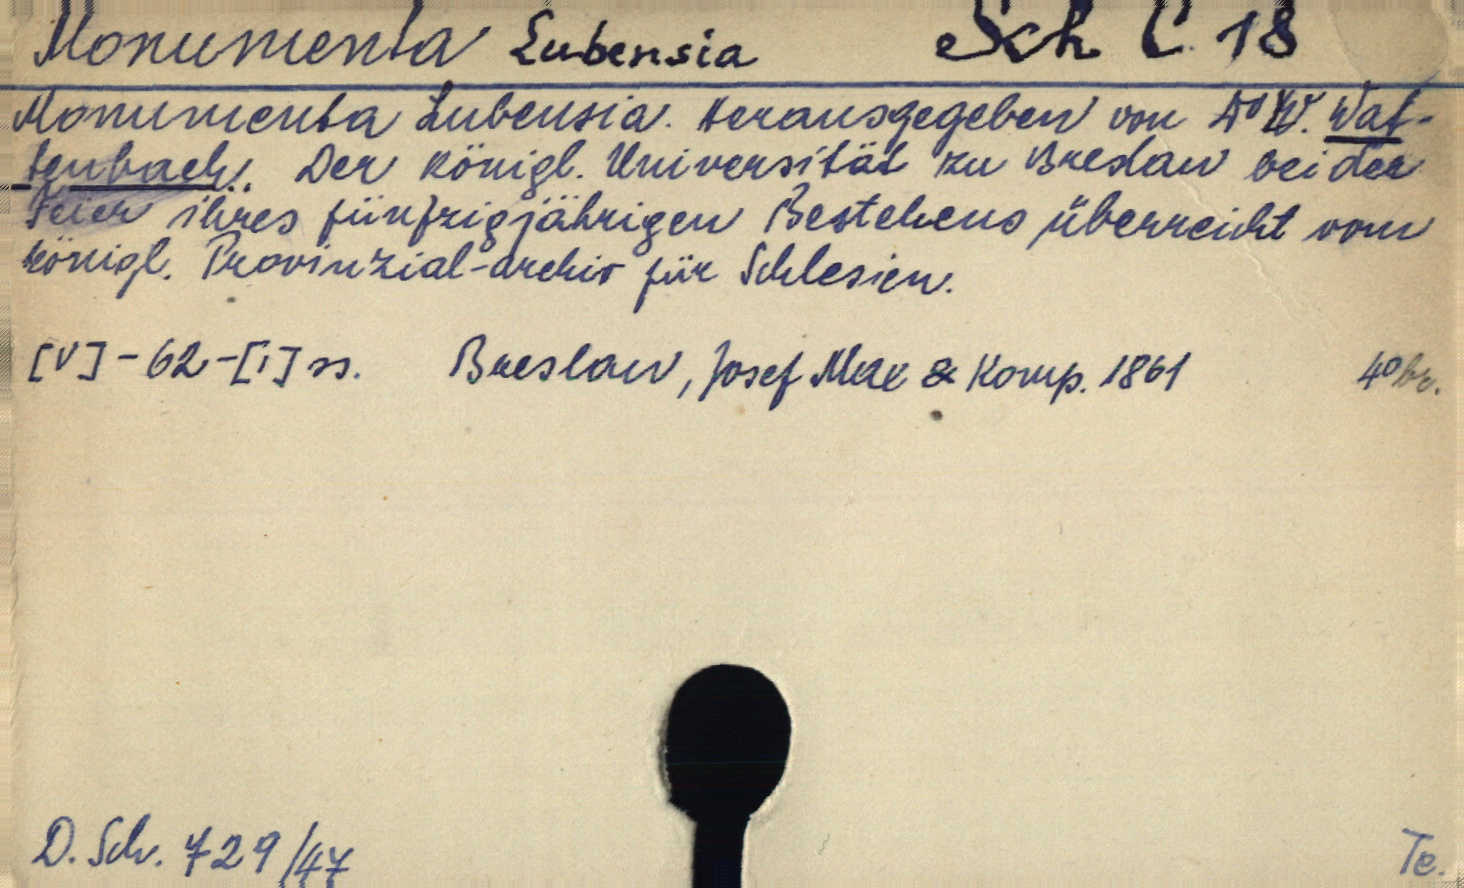 Monumenta Lubensia Sch C. 18
Monumenta Lubensia. Herausgegeben von Dr W. Wat-
tenbach.. Der königl. Universität zu Breslau bei der
Feier ihres fünfzigjährigen Bestehens überreicht vom
königl. Provinzial-archiv für Schlesien.
[V]-62-[1] ss. Breslau, Josef Max & Komp. 1861 4° br.
D. Sch. 729/47 Te.